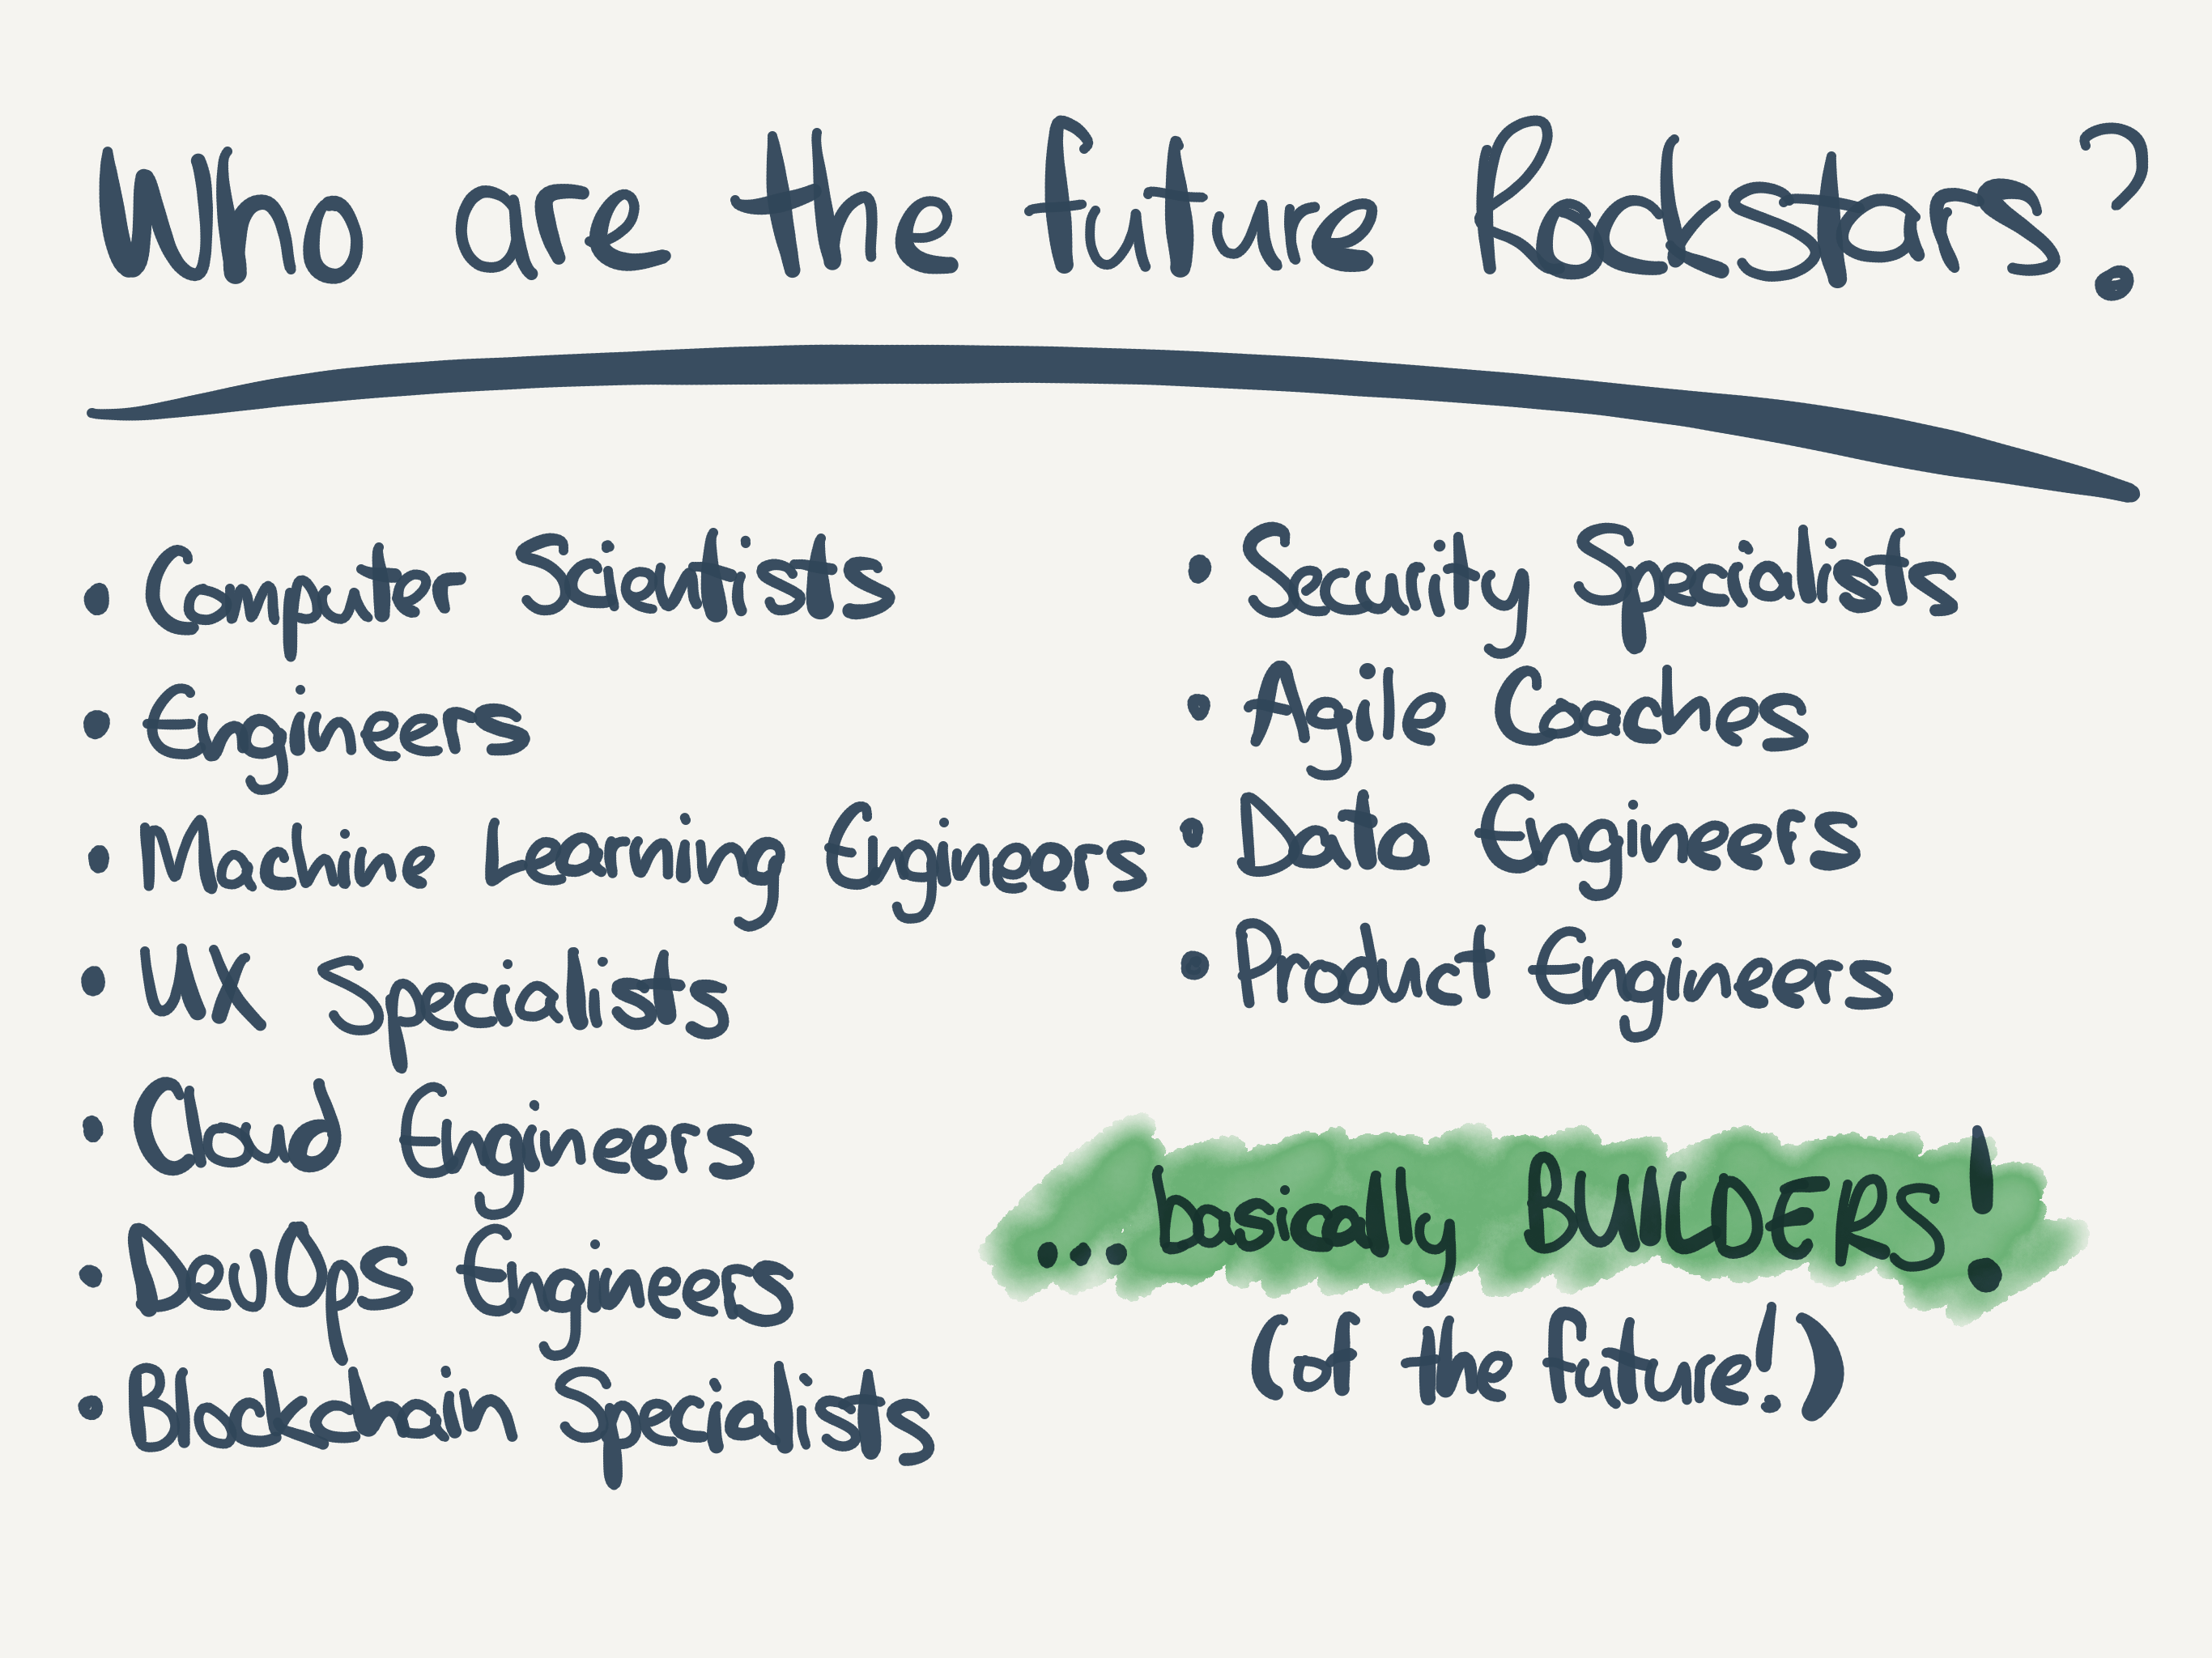 Who are the future Rockstars?
• Computer Scientists
• Engineers
• Machine Learning Engineers
• UX Specialists
• Cloud Engineers
• DevOps Engineers
• Blockchain Specialists
• Security Specialists
• Agile Coaches
• Data Engineers
• Product Engineers
... basically BUILDERS!
(of the future!)